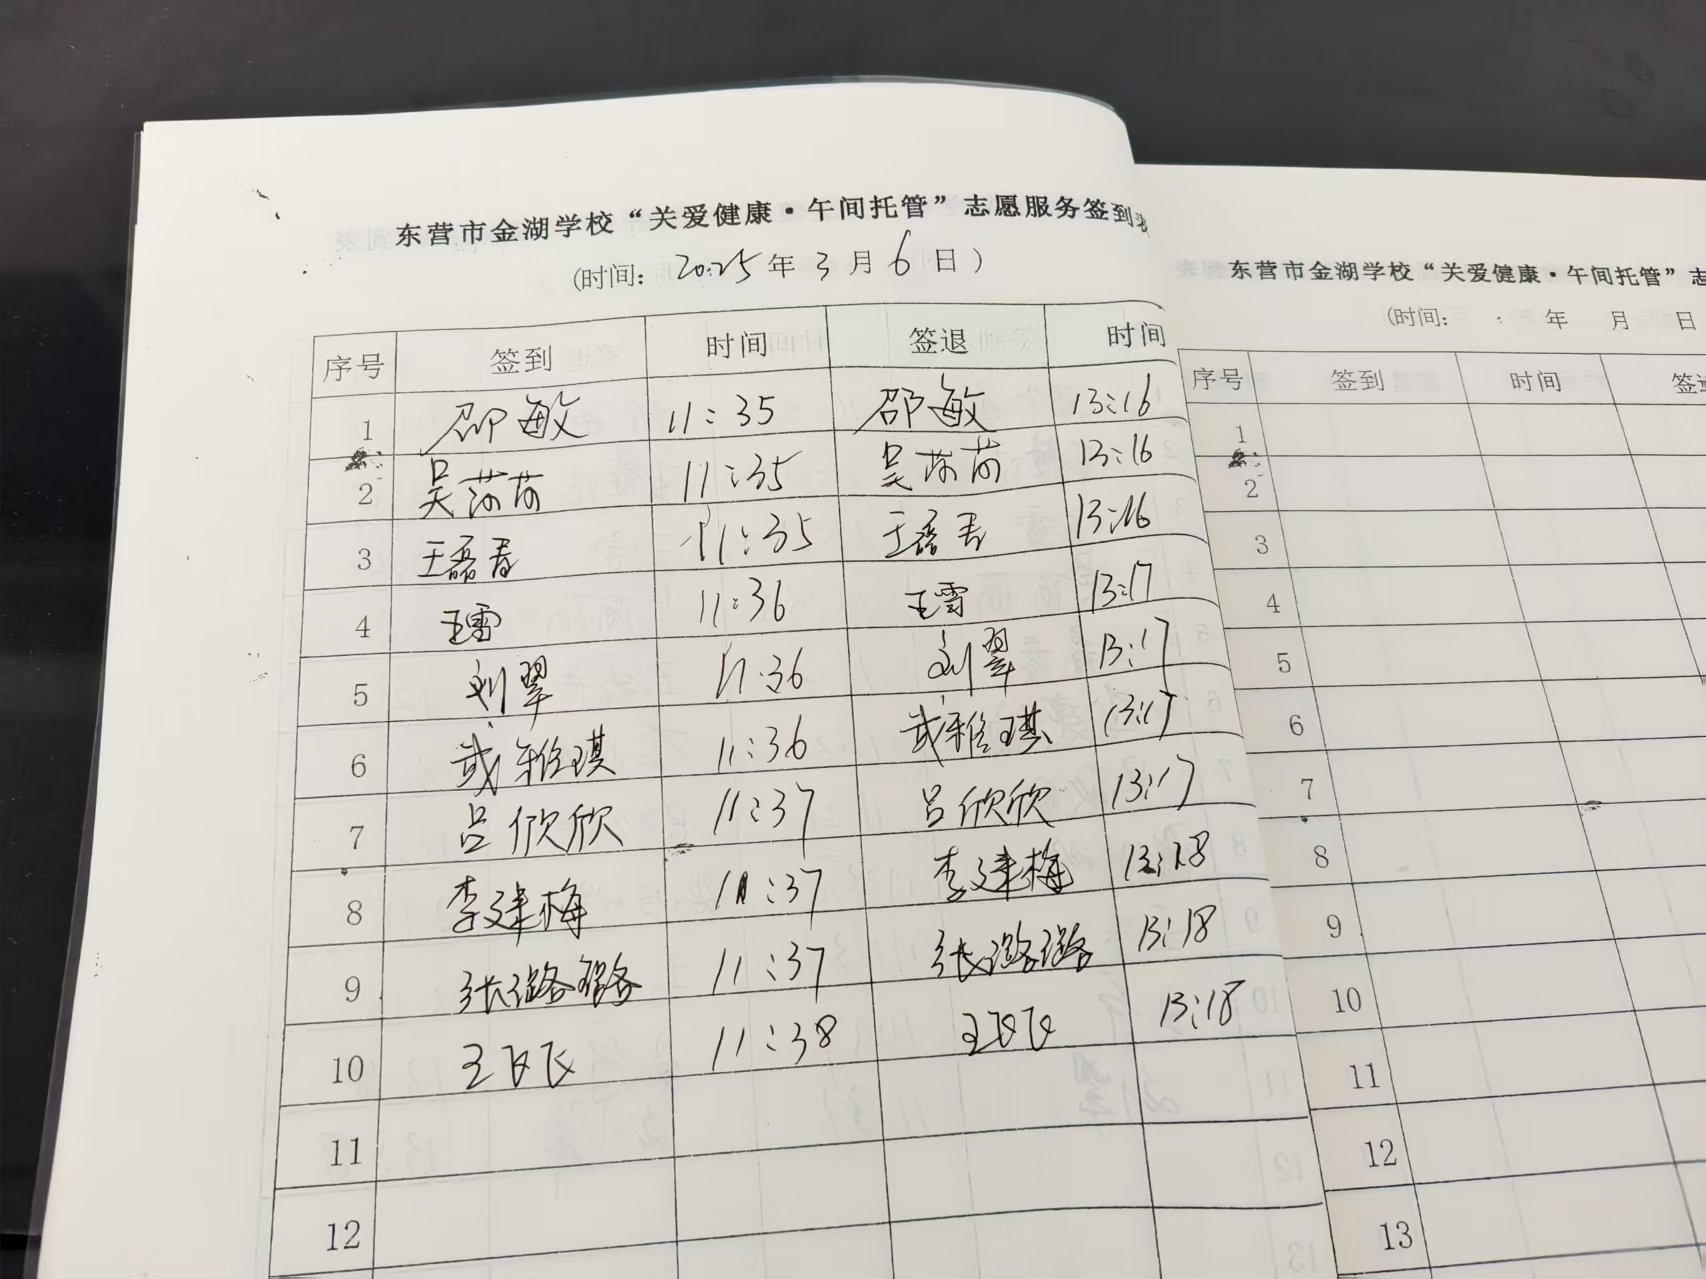 东营市金湖学校“关爱健康·午间托管”志愿服务签到表
(时间: 2025年3月6日)
序号 签到 时间 签退 时间
1 邵敏 11:35 邵敏 13:16
2 吴 11:35 吴 13:16
3 王磊 11:35 王磊 13:16
4 王雷 11:36 王雪 13:17
5 刘翠 11:36 刘翠 13:17
6 武雅琪 11:36 武雅琪 13:17
7 吕欣欣 11:37 吕欣欣 13:17
8 李建梅 11:37 李建梅 13:18
9 张璐璐 11:37 张璐璐 13:18
10 王飞飞 11:38 王飞飞 13:18
11
12
东营市金湖学校“关爱健康·午间托管”志
(时间: 年 月 日
序号 签到 时间 签退
1
2
3
4
5
6
7
8
9
10
11
12
13